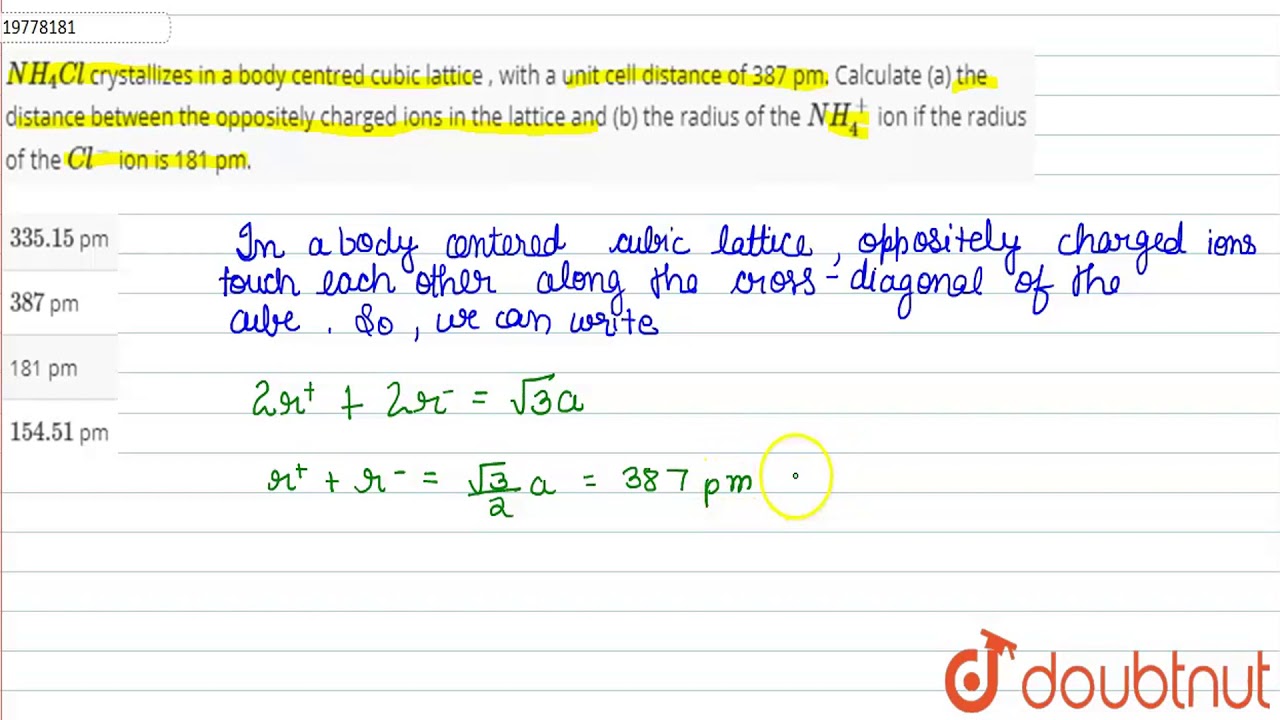 19778181
NH₄Cl crystallizes in a body centred cubic lattice , with a unit cell distance of 387 pm. Calculate (a) the
distance between the oppositely charged ions in the lattice and (b) the radius of the NH₄⁺ ion if the radius
of the Cl⁻ ion is 181 pm.
335.15 pm
387 pm
181 pm
154.51 pm
In a body centered cubic lattice, oppositely charged ions
touch each other along the cross-diagonal of the
cube. So, we can write
2r⁺ + 2r⁻ = √3a
r⁺ + r⁻ = √3/2 a = 387 pm
doubtnut